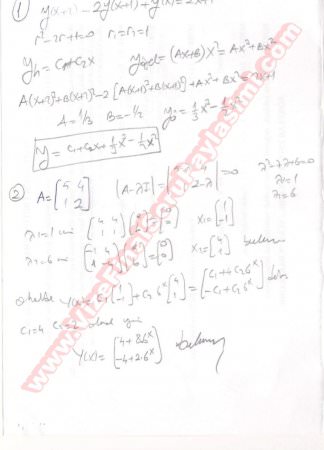 1) y(x+2) - 2y(x+1) + y(x) = 2x+1
r² - 2r + 1 = 0   r₁ = r₂ = 1
yh = c₁ + c₂x   yözel = (Ax+B)x² = Ax³ + Bx²
A(x+2)³ + B(x+2)² - 2[A(x+1)³ + B(x+1)²] + Ax³ + Bx² = 2x+1
A = 1/3   B = -1/2   yö = 1/3 x³ - 1/2 x²
y = c₁ + c₂x + 1/3 x³ - 1/2 x²
2) A = [5 4; 1 2]   |A - λI| = 0   λ² - 7λ + 6 = 0
λ₁ = 1   λ₂ = 6
λ₁ = 1 için [4 4; 1 1] = [0; 0]   X₁ = [1; -1]
λ₂ = 6 için [-1 4; 1 -4] = [0; 0]   X₂ = [4; 1] bulunur
o halde y(x) = c₁ [1; -1] + c₂ 6ˣ [4; 1] = [c₁ + 4c₂6ˣ; -c₁ + c₂6ˣ]
c₁ = 4   c₂ = 2
y(x) = [4 + 8.6ˣ; -4 + 2.6ˣ] bulunur
www.VizeFinalSoruPaylasimi.com